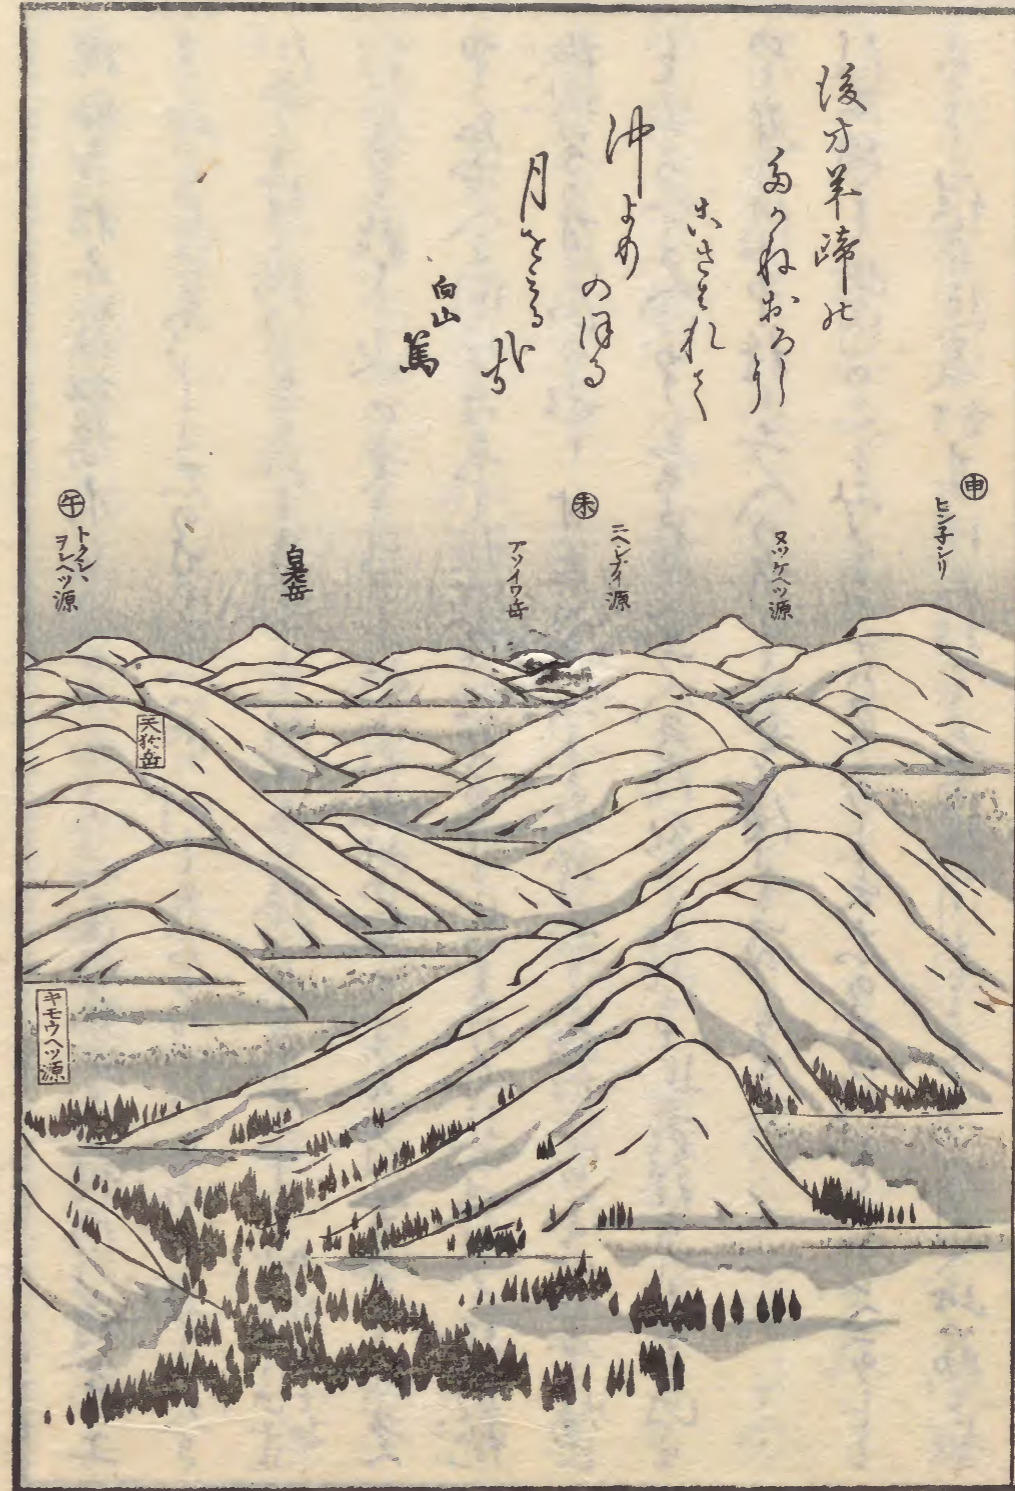 後方羊蹄の
たかねおろしに
こさはれて
沖より
のほる
月をみる
哉
向山
篤
申
ヒン子シリ
ヌツケヘツ源
未
ニヘシナイ源
アソイワ岳
白老岳
午
トクシヽ
ヲレヘツ源
天狗岳
キモウヘツ源